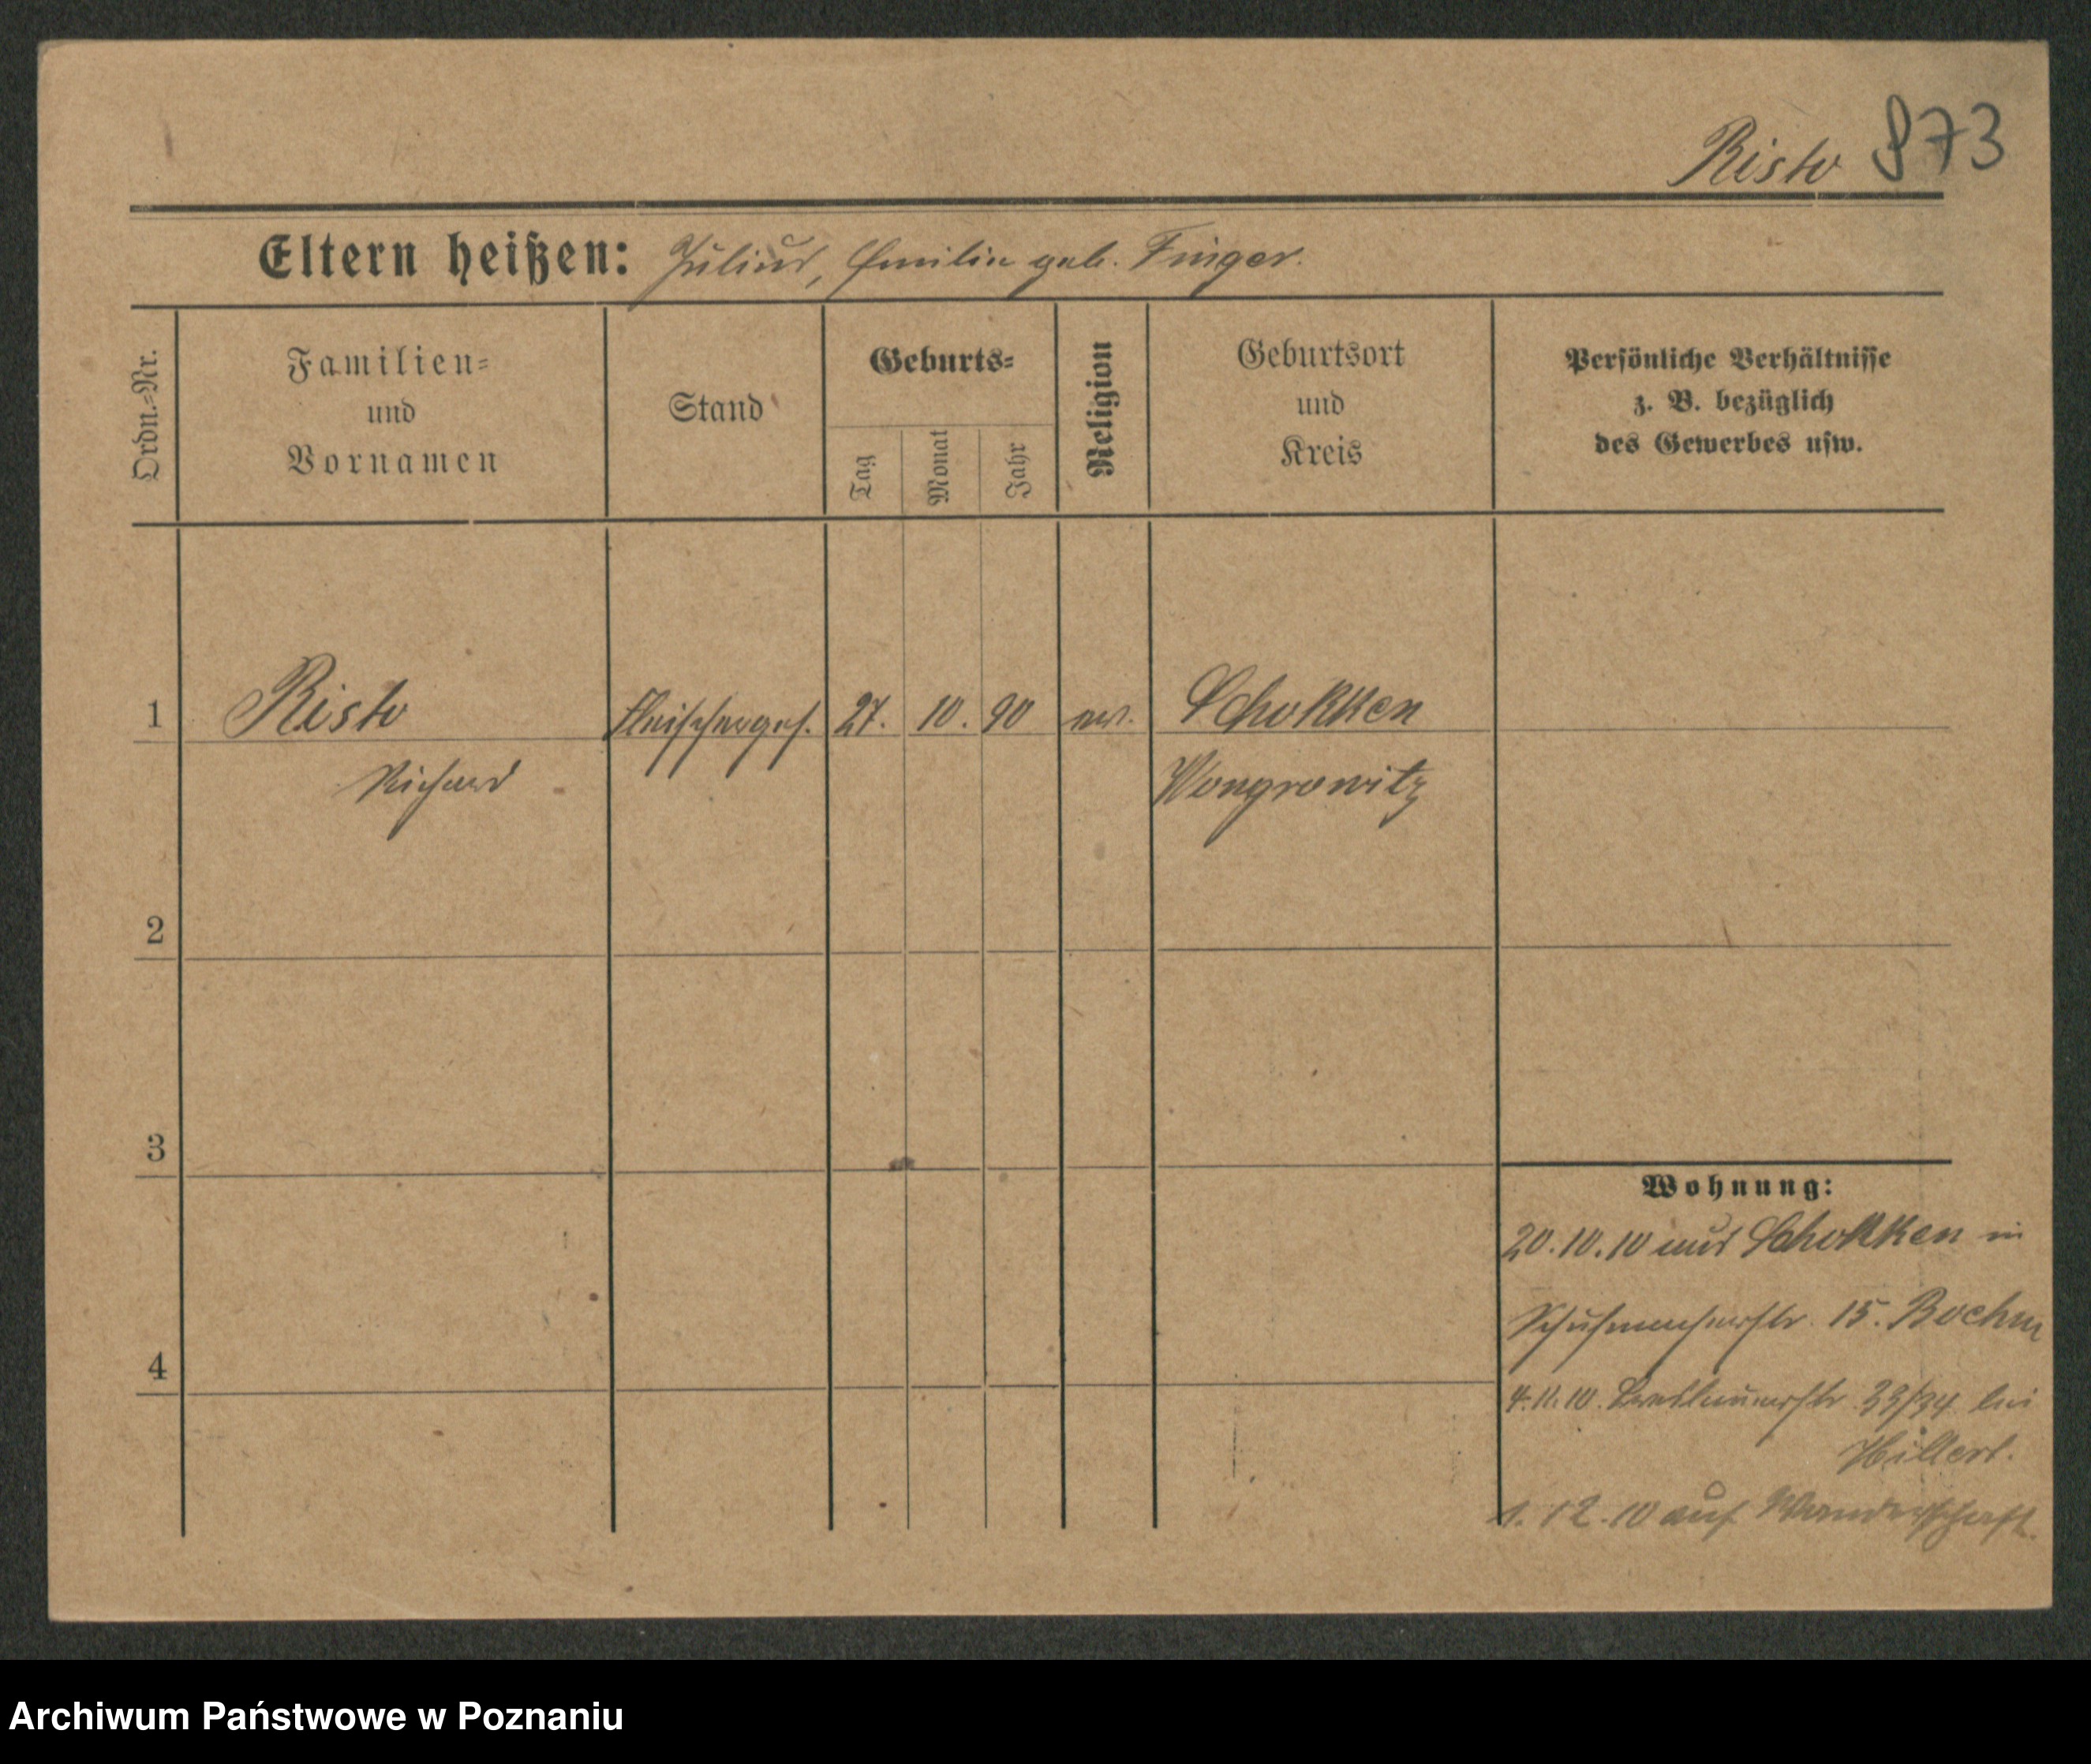 Risto 873
Eltern heißen: Julius, Emilie geb. Finger.
Ordn.=Nr.
Familien=
und
Vornamen
Stand
Geburts=
Tag
Monat
Jahr
Religion
Geburtsort
und
Kreis
Persönliche Verhältnisse
z. B. bezüglich
des Gewerbes usw.
1 Risto Fleischerges. 27. 10. 90 ev. Schokken
Richard Wongrowitz
2
3
4
Wohnung:
20.10.10 aus Schokken in
Schuhmacherstr. 15. Boehm
4.11.10. Breslauerstr 33/34 bei
Hillert.
1.12.10 auf Wanderschaft.
Archiwum Państwowe w Poznaniu